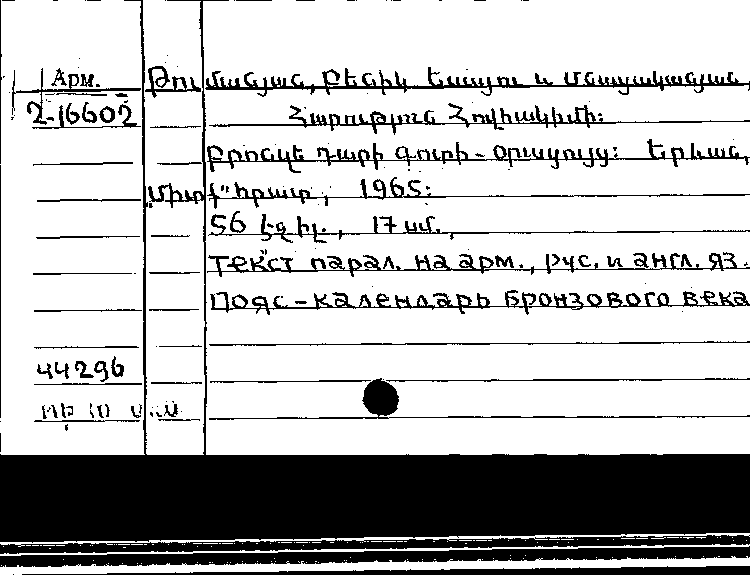 Арм. Թումանյան, Բենիկ Եսայու և Մնացականյան,
2-16602 Հարություն Հովակիմի։
Բրոնզե դարի գոտի-օրացույց։ Երևան,
"Միտք" հրատ, 1965։
56 էջ իլ., 17 սմ.,
текст парал. на арм., рус. и англ. яз.
Пояс-календарь бронзового века
44296